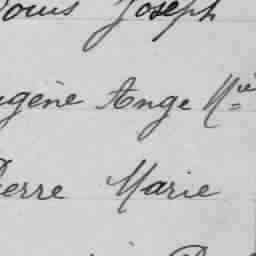 Louis Joseph
Eugène Ange Mie
Pierre Marie